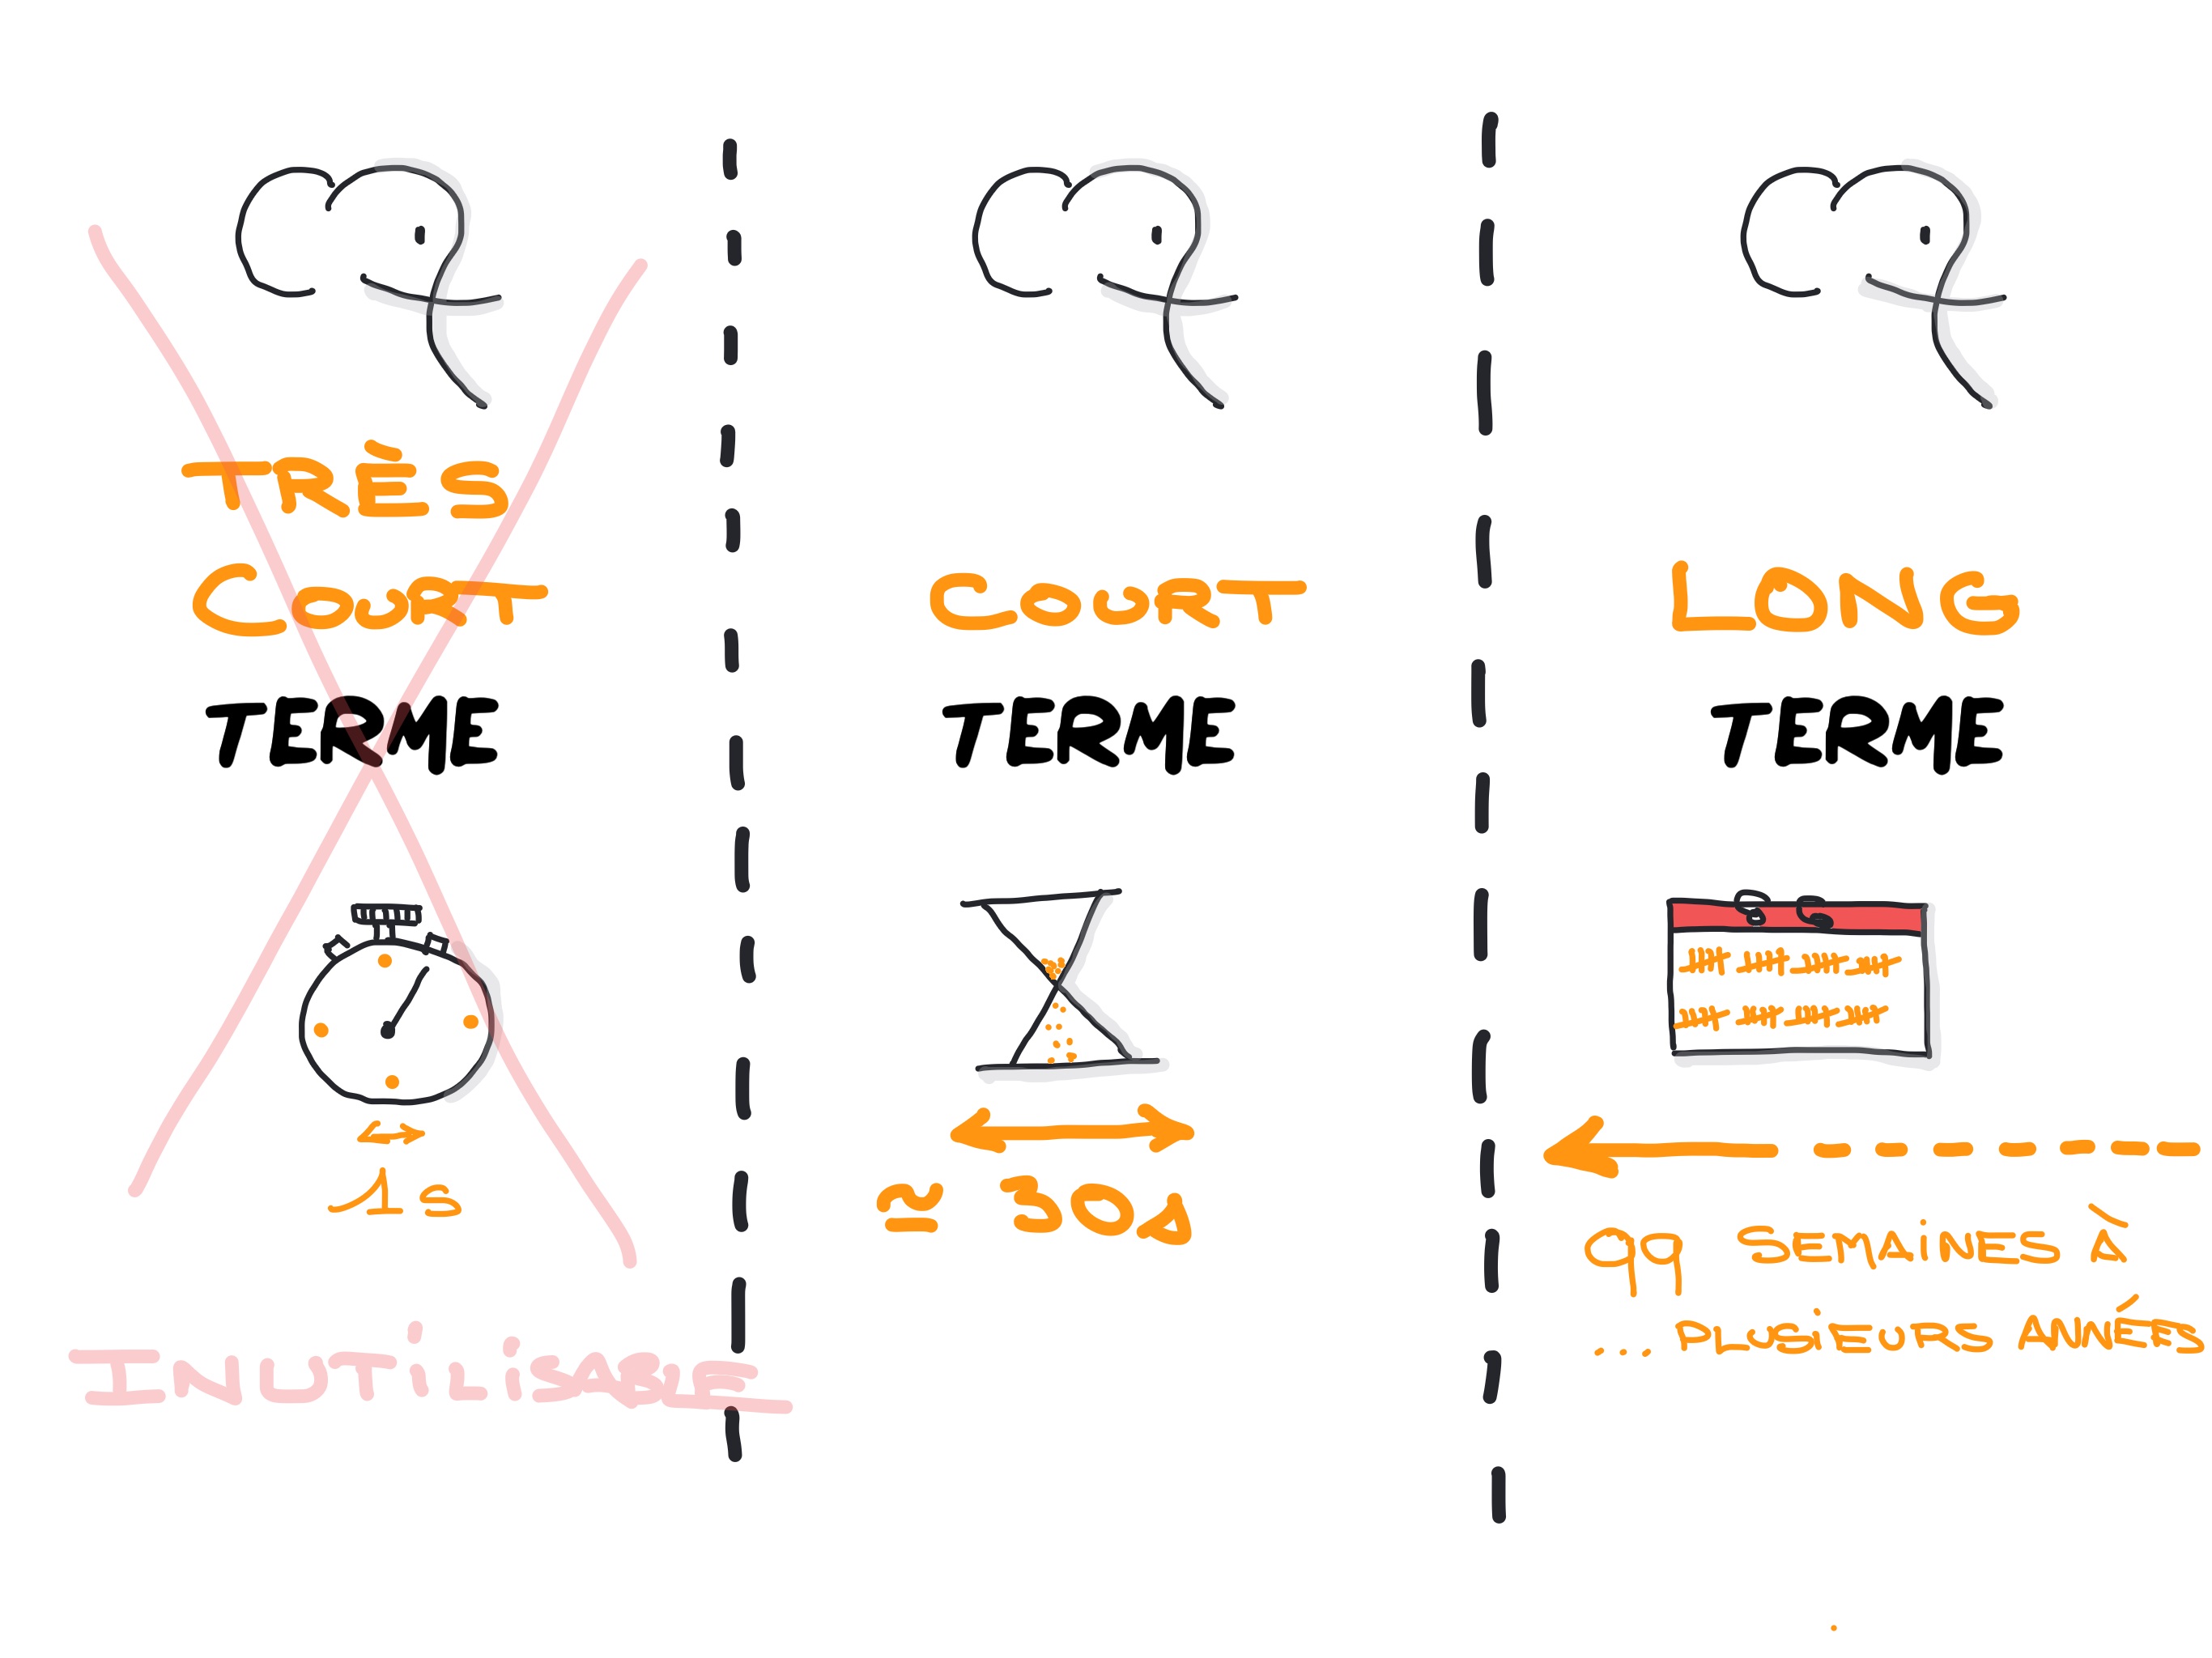 TRÈS
COURT
TERME
1s
INUTiLiSABLE
COURT
TERME
≃ 30s
LONG
TERME
qq SEMAiNES À
... PLUSiEURS ANNÉES